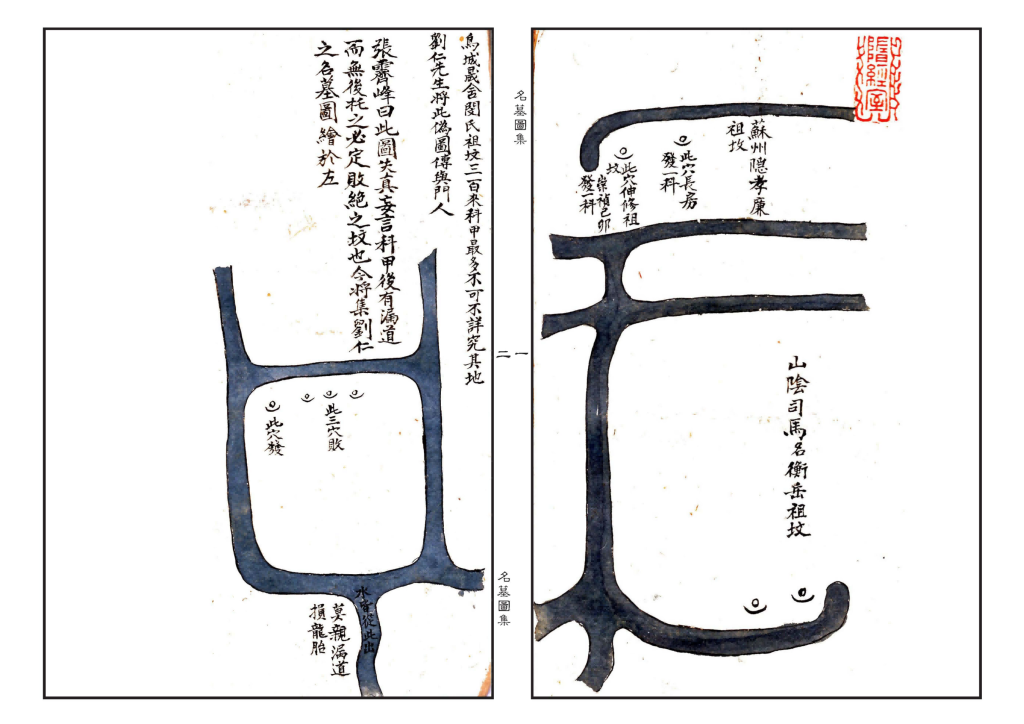 名墓圖集
一
蘇州隠孝廉
祖坟
此穴長房
發一科
此穴伸修祖
坟
崇禎己卯
發一科
山陰司馬名衡岳祖坟
二
名墓圖集
烏城晟舍閔氏祖坟三百來科甲最多不可不詳究其地
劉仁先生将此偽圖傳與門人
張霽峰曰此圖失真妄言科甲後有漏道
而無後托之必定敗絶之坟也今将集劉仁
之名墓圖繪於左
此三穴敗
此穴發
水皆從此出
莫親漏道
損龍胎